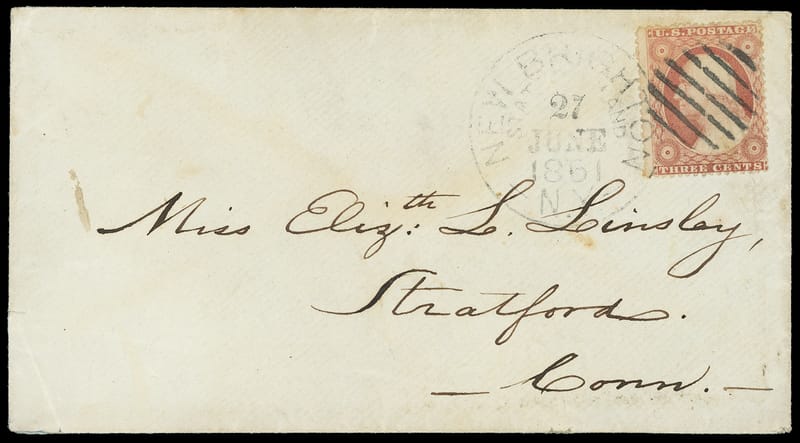 U.S. POSTAGE
THREE CENTS
NEW BRIGHTON
STATEN ISLAND
27
JUNE
1861
N.Y.
Miss Eliz:th L. Linsley,
Stratford.
— Conn. —